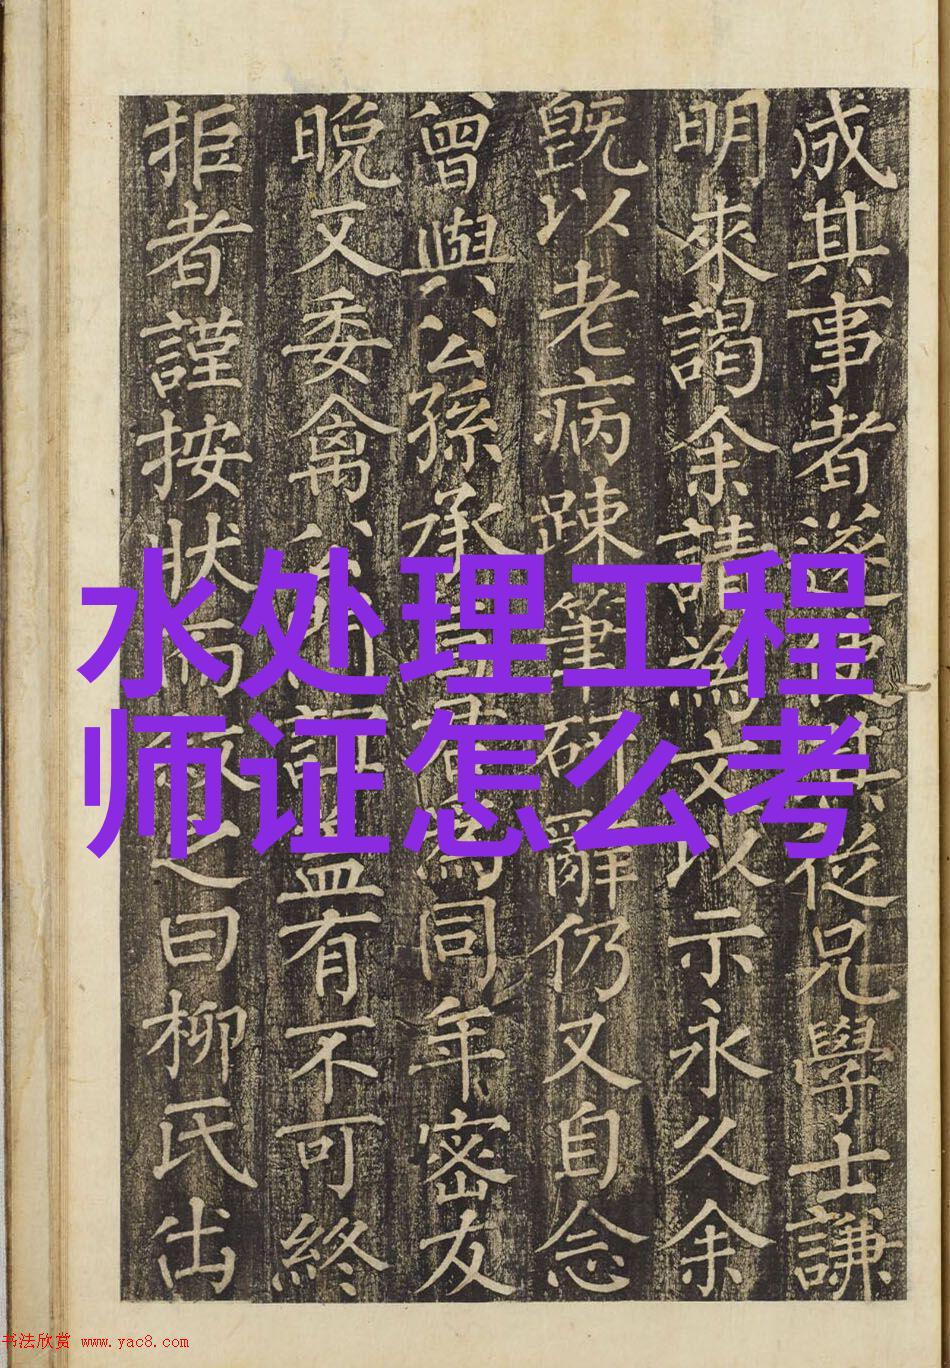 成其事者從兄學士謙
明來謁余請為文以示永久余
既以老病踈筆硯辭仍又自念
曾與公孫承君為同年密友
晚又委禽公門益有不可終
拒者謹按狀而之曰柳氏出
水处理工程
师证怎么考
书法欣赏 www.yac8.com